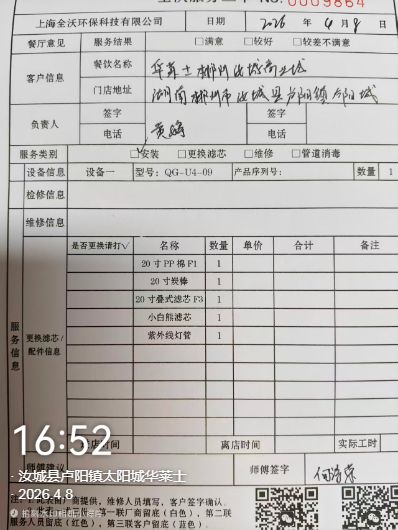 NO. 0009864
上海全沃环保科技有限公司 日期 2026 年 4 月 8 日
餐厅意见 服务结果 □满意 □较好 □较差不满意
客户信息 餐饮名称 华莱士郴州汝城商业城
门店地址 湖南郴州市汝城县卢阳镇
负责人 签字 黄
电话
服务类别 □安装 □更换滤芯 □维修 □管道消毒
设备信息 设备一 型号: QG-U4-09 产品序列号: 数量 1
检修信息
维修信息
服务信息
更换滤芯/配件信息
是否更换请打√ 名称 数量 单价 合计 备注
20寸PP棉F1 1
20寸炭棒 1
20寸叠式滤芯F3 1
小白熊滤芯 1
紫外线灯管 1
16:52
店时间 离店时间 实际工时
- 汝城县卢阳镇太阳城华莱士
- 2026.4.8
师傅建议 师傅签字 何
商提供,维修人员填写,客户签字确认。
(白色),第二联
服务人员留底(红色),第三联客户留底(蓝色)。